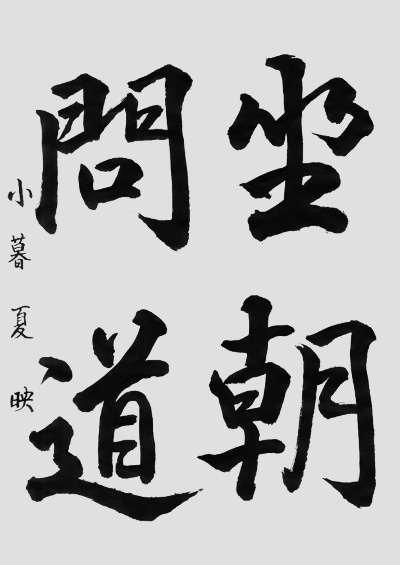 坐朝
問道
小暮夏映